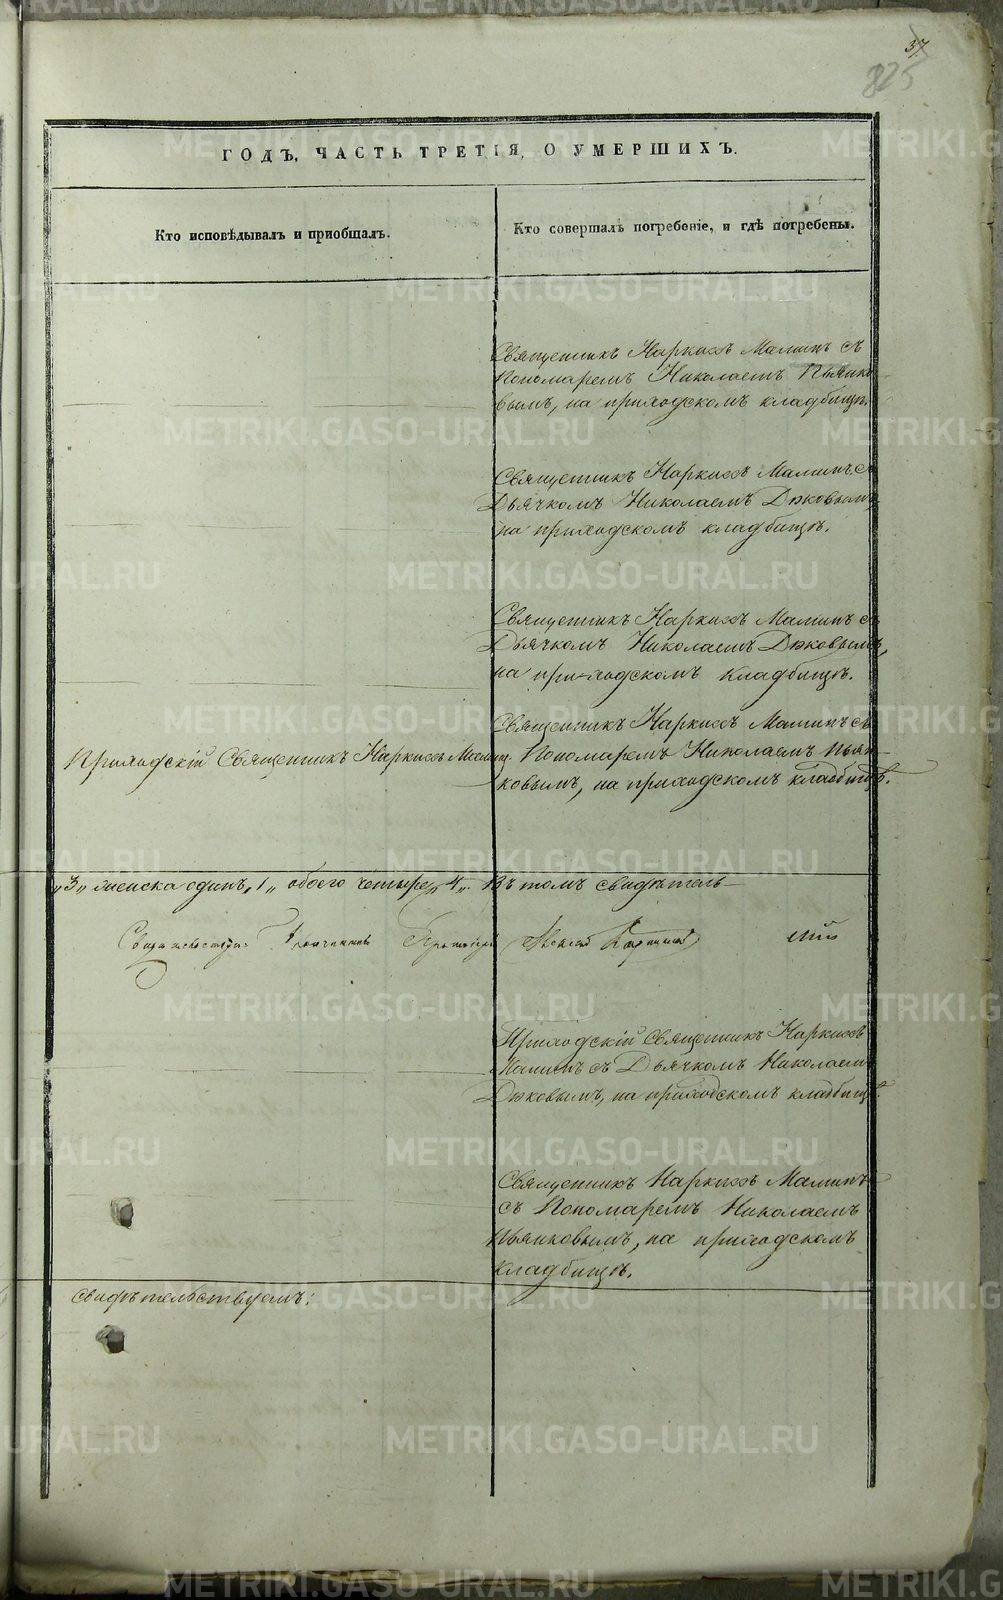 37
825
ГОДЪ, ЧАСТЬ ТРЕТІЯ, О УМЕРШИХЪ.
Кто исповѣдывалъ и приобщалъ.
Кто совершалъ погребеніе, и гдѣ погребены.
Священникъ Наркисъ Маминъ съ
Пономаремъ Николаемъ Пьянко-
вымъ, на приходскомъ кладбищѣ.
Священникъ Наркисъ Маминъ съ
Дьячкомъ Николаемъ Дюковымъ,
на приходскомъ кладбищѣ.
Священникъ Наркисъ Маминъ съ
Дьячкомъ Николаемъ Дюковымъ,
на приходскомъ кладбищѣ.
Приходскій Священникъ Наркисъ Маминъ.
Священникъ Наркисъ Маминъ съ
Пономаремъ Николаемъ Пьян-
ковымъ, на приходскомъ кладбищѣ.
„3„ женска одинъ „1„ обоего четыре „4„. Въ томъ свидѣтель-
Приходскій Священникъ Наркисъ
Маминъ съ Дьячкомъ Николаемъ
Дюковымъ, на приходскомъ кладбищѣ.
Священникъ Наркисъ Маминъ
съ Пономаремъ Николаемъ
Пьянковымъ, на приходскомъ
кладбищѣ.
свидѣтельствуемъ:
METRIKI.GASO-URAL.RU